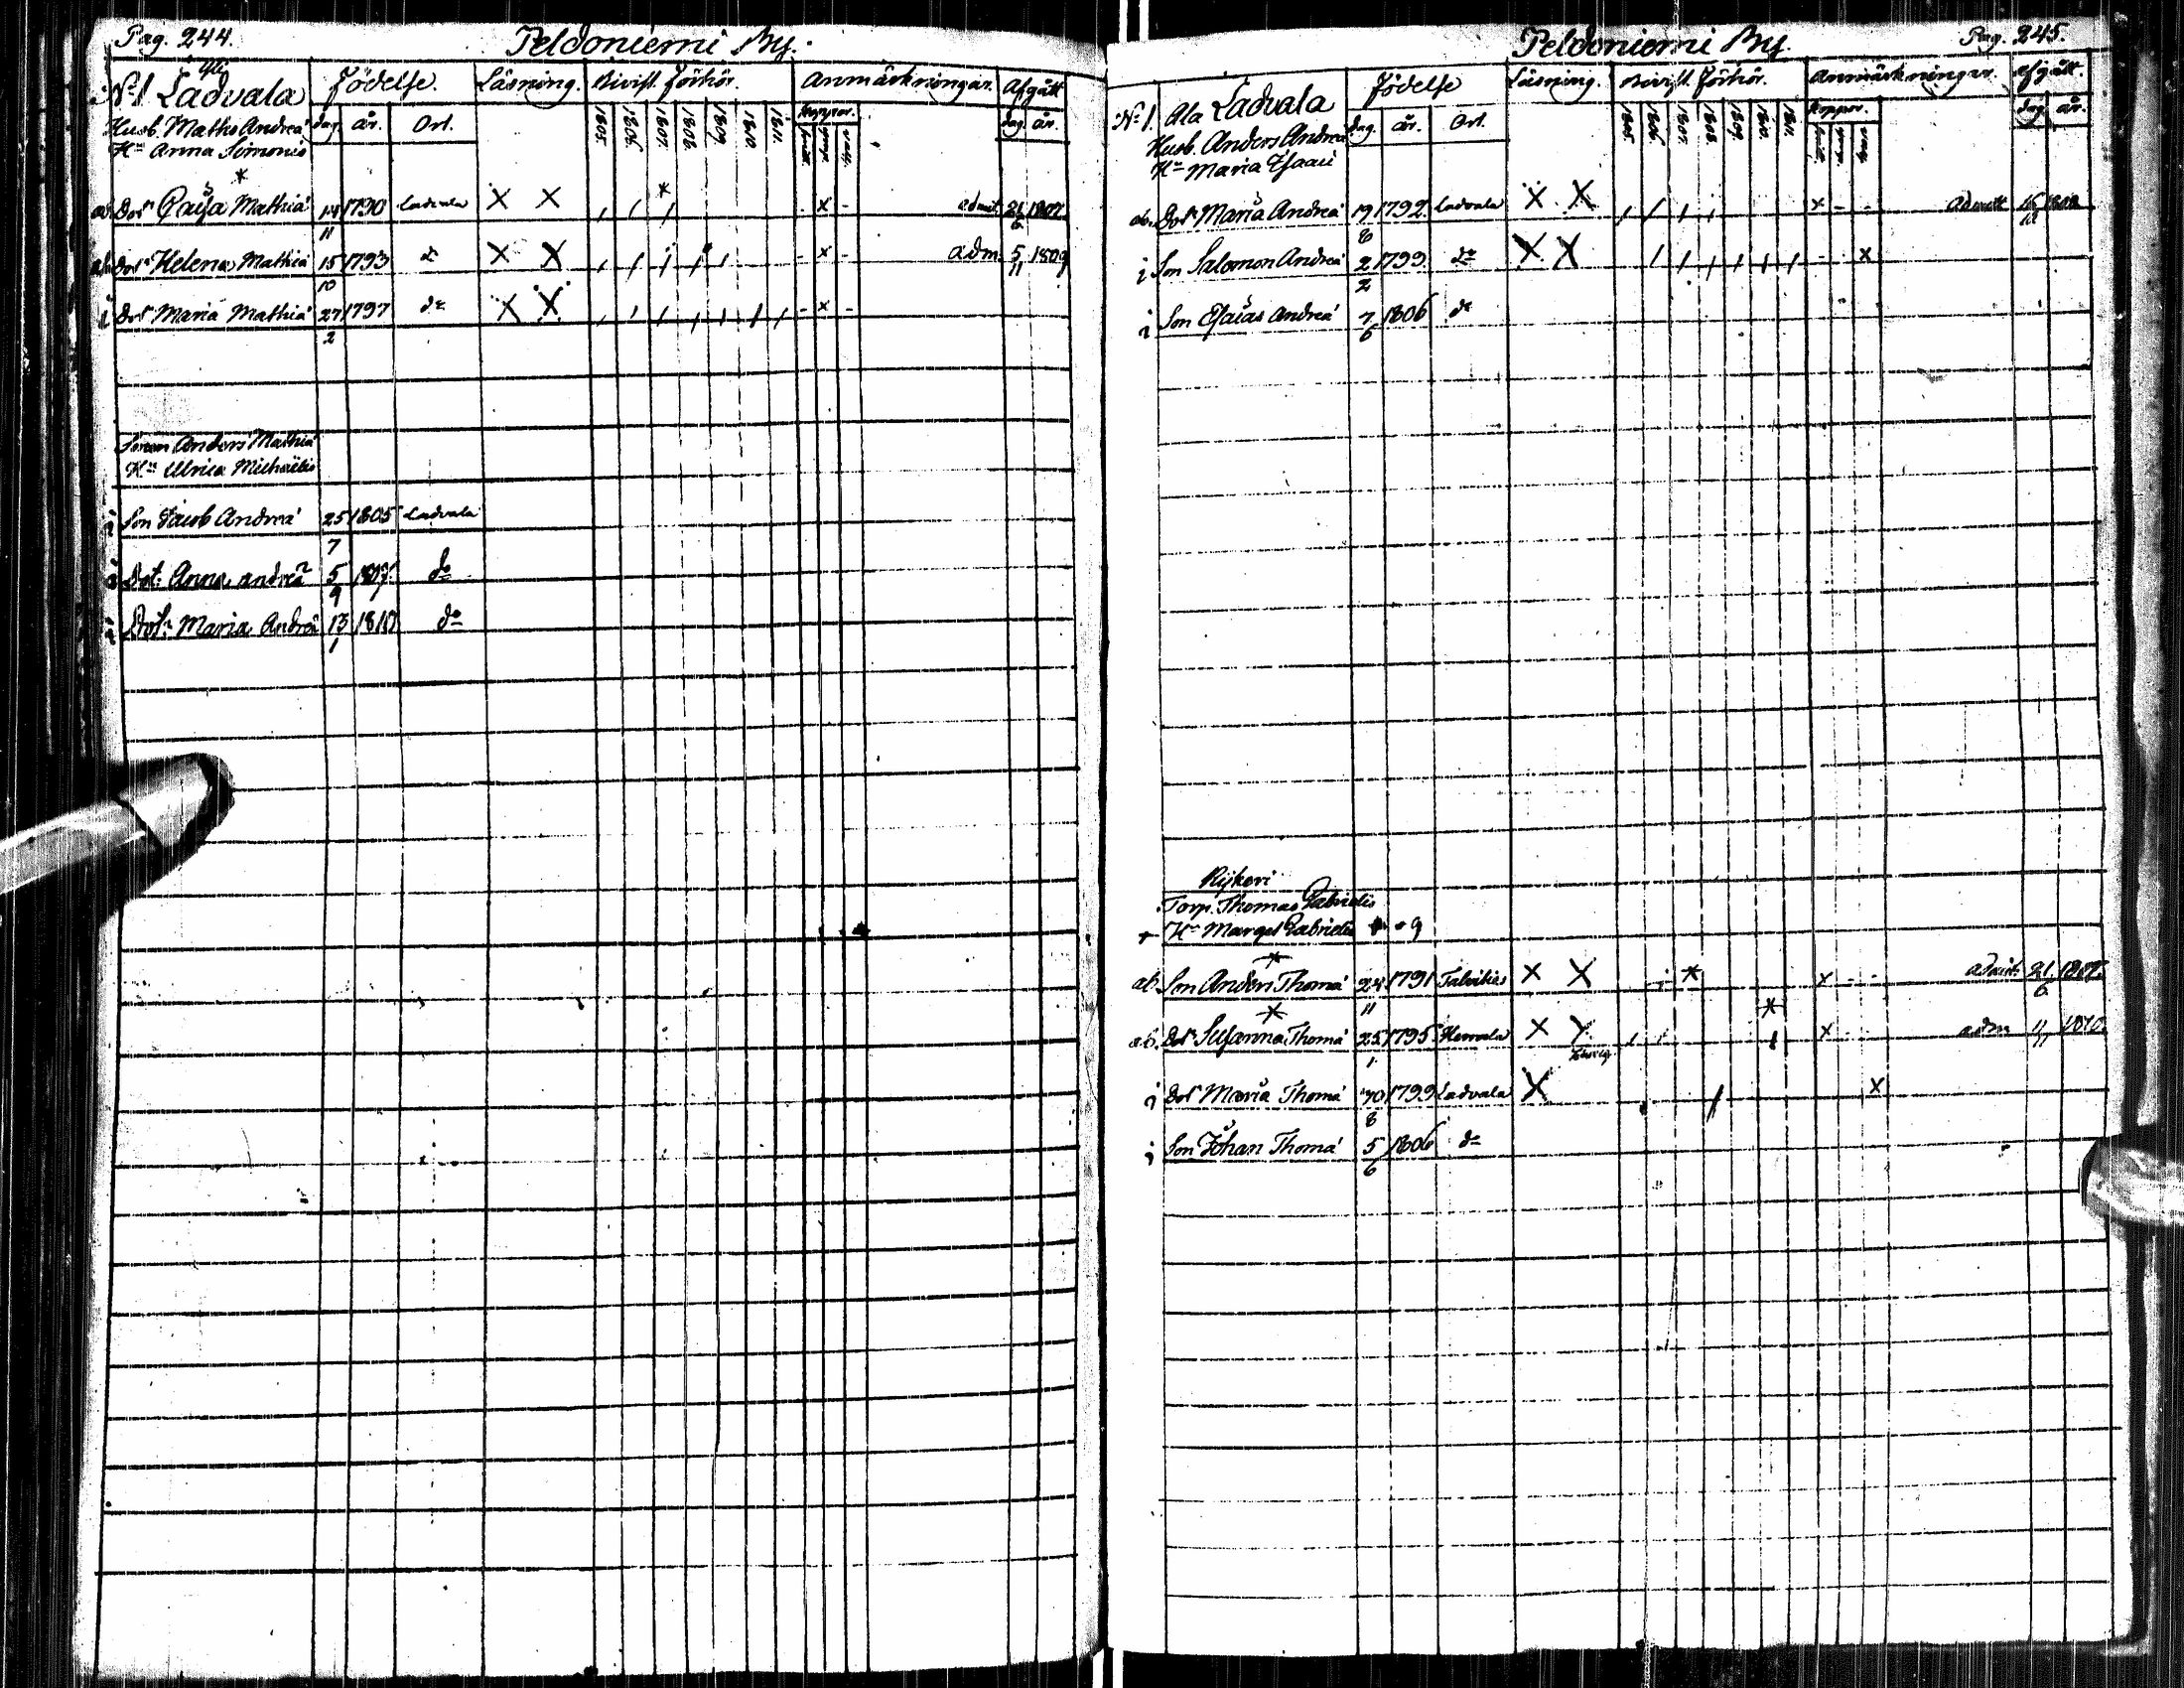 Pag. 244.
Peldoniemi By.
Yli
No 1 Ladvala Födelse. Läsning. Christl. Förhör. Anmärkningar. Afgått
Husb. Maths Andreæ dag. år. Ort. 1805. 1806. 1807. 1808. 1809. 1810. 1811. Koppor. dag. år.
Hu Anna Simonis
ab. Dotr Caisa Mathiæ 14/11 1790 Ladvala X X admit. 21/6 1807.
ab. Dotr Helena Mathiæ 15/10 1793 do X X adm. 5/11 1809
i Dotr Maria Mathiæ 27/2 1797 do X X - x -
Sonen Anders Mathiæ
Hu Ulrica Michaëlis
i Son Jacob Andreæ 25/7 1805 Ladvala
i Dotr Anna Andreæ 5/9 1807. do
i Dotr Maria Andreæ 13/1 1810 do
Pag. 245.
Peldoniemi By
No 1. Ala Ladvala Födelse Läsning. Christl. Förhör. Anmärkningar. Afgått.
Husb. Anders Andreæ dag. år. Ort. 1805. 1806. 1807. 1808. 1809. 1810. 1811. Koppor. dag. år.
Hu Maria Esaiæ
ab. Dotr Maria Andreæ 19/8 1792. Ladvala X X x - - admitt
i Son Salomon Andreæ 2/2 1799. do X X - - x
i Son Esaias Andreæ 7/6 1806 do
Torp. Thomas Gabrielis
+ Hu Marget Gabrielis
ab. Son Anders Thomæ 24/11 1791 X X x - - admit. 21/6 1807.
ab. Dotr Susanna Thomæ 25/1 1795. X X x - - adm 11/11 1810.
i Dotr Maria Thomæ 1799 Ladvala X x
i Son Johan Thomæ 5/6 1806 do